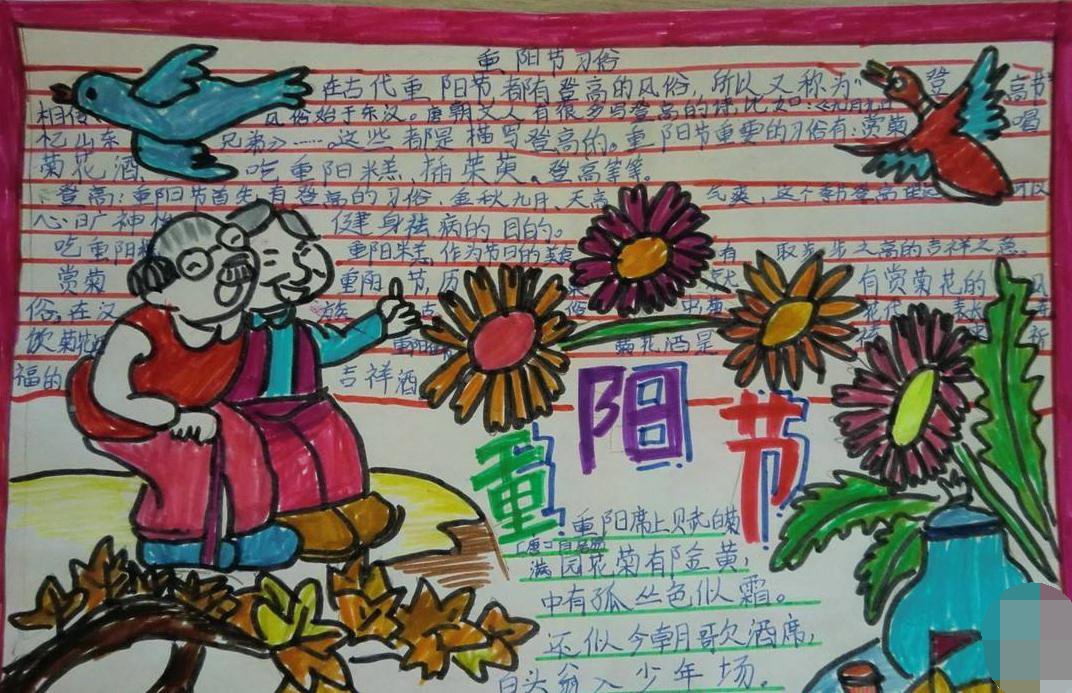 重阳节习俗
在古代重阳节都有登高的风俗,所以又称为“登高节”
相传 风俗始于东汉。唐朝文人有很多写登高的诗比如:《九月九日
忆山东 兄弟》……。这些都是描写登高的。重阳节重要的习俗有:赏菊 喝
菊花酒 吃重阳糕、插茱萸、登高等等。
登高:重阳节首先有登高的习俗,金秋九月,天高 气爽,这个季节登高 可以
心旷神怡 健身祛病的目的。
吃重阳糕 重阳糕,作为节日的美食 有 取步步之高的吉祥之意。
赏菊 重阳节,历 就 有赏菊花的 风
俗,在汉 族 古 俗 中菊 花 表长
饮菊花酒 重阳 菊花酒是 祈
福的 吉祥酒
重阳节
重阳席上赋白菊
「唐」白居易
满园花菊郁金黄,
中有孤丛色似霜。
还似今朝歌酒席,
白头翁入少年场。